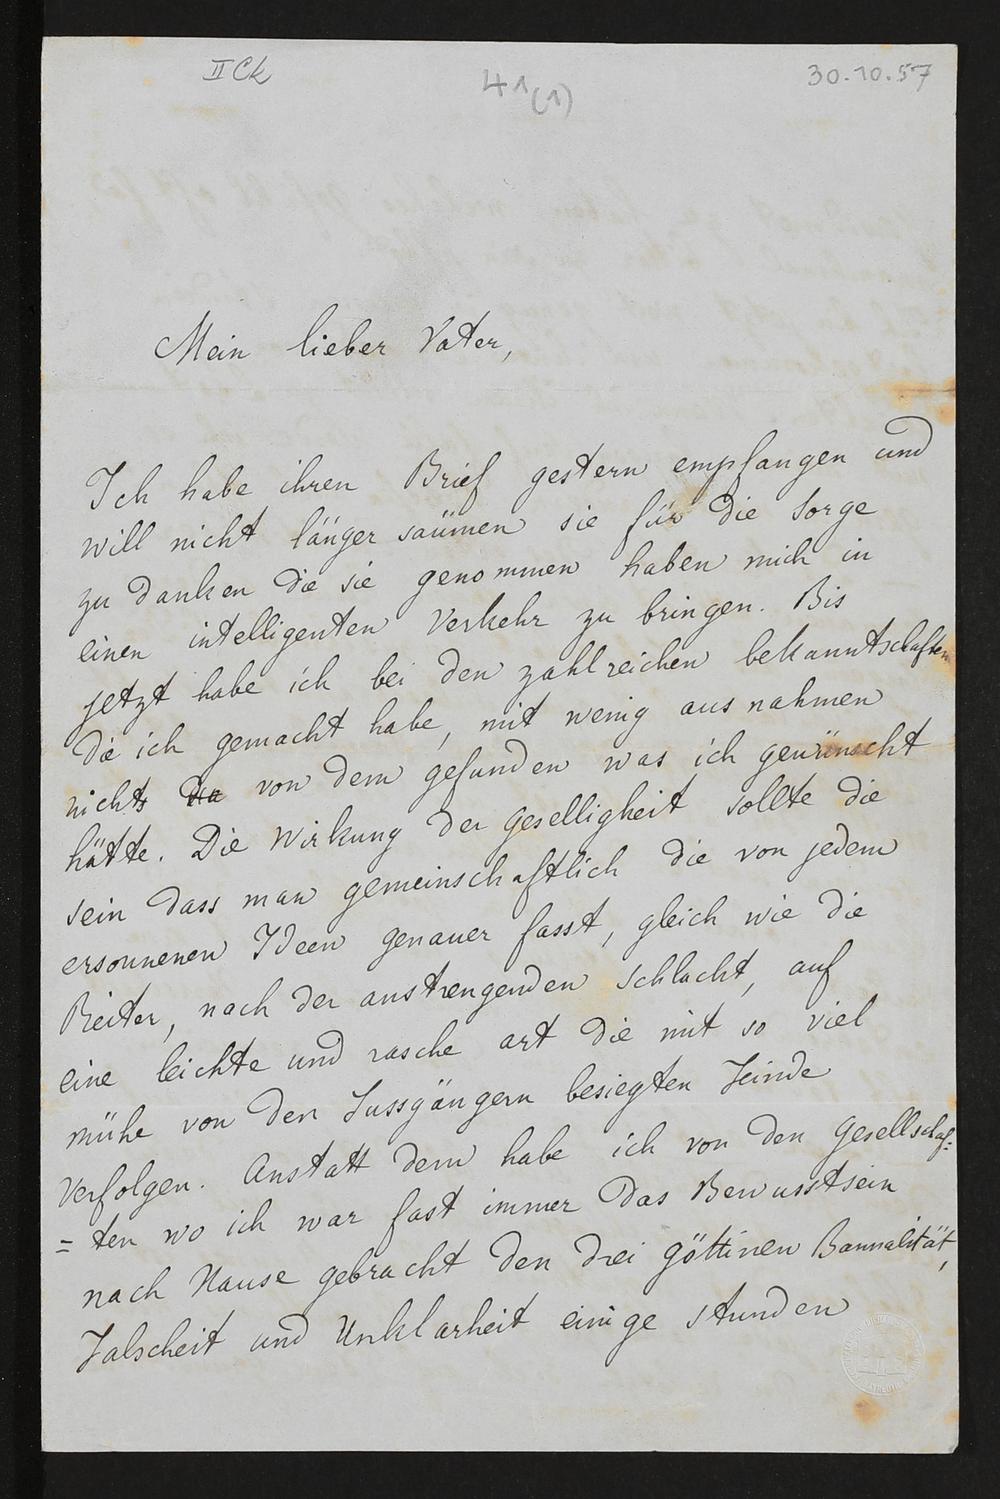 II Ck
41(1)
30.10.57
Mein lieber Vater,
Ich habe ihren Brief gestern empfangen und
will nicht länger saümen sie für die Sorge
zu danken die sie genommen haben mich in
einen intelligenten Verkehr zu bringen. Bis
jetzt habe ich bei den zahlreichen bekanntschaften
die ich gemacht habe, mit wenig ausnahmen
nichts von dem gefunden was ich gewünscht
hätte. Die Wirkung der Geselligkeit sollte die
sein dass man gemeinschaftlich die von jedem
ersonnenen Ideen genauer fasst, gleich wie die
Reiter, nach der anstrengenden schlacht, auf
eine leichte und rasche art die mit so viel
mühe von den Fussgängern besiegten Feinde
verfolgen. Anstatt dem habe ich von den Gesellschaf=
=ten wo ich war fast immer das Bewusstsein
nach Hause gebracht den drei göttinen Bannalität,
Falscheit und Unklarheit einige stunden